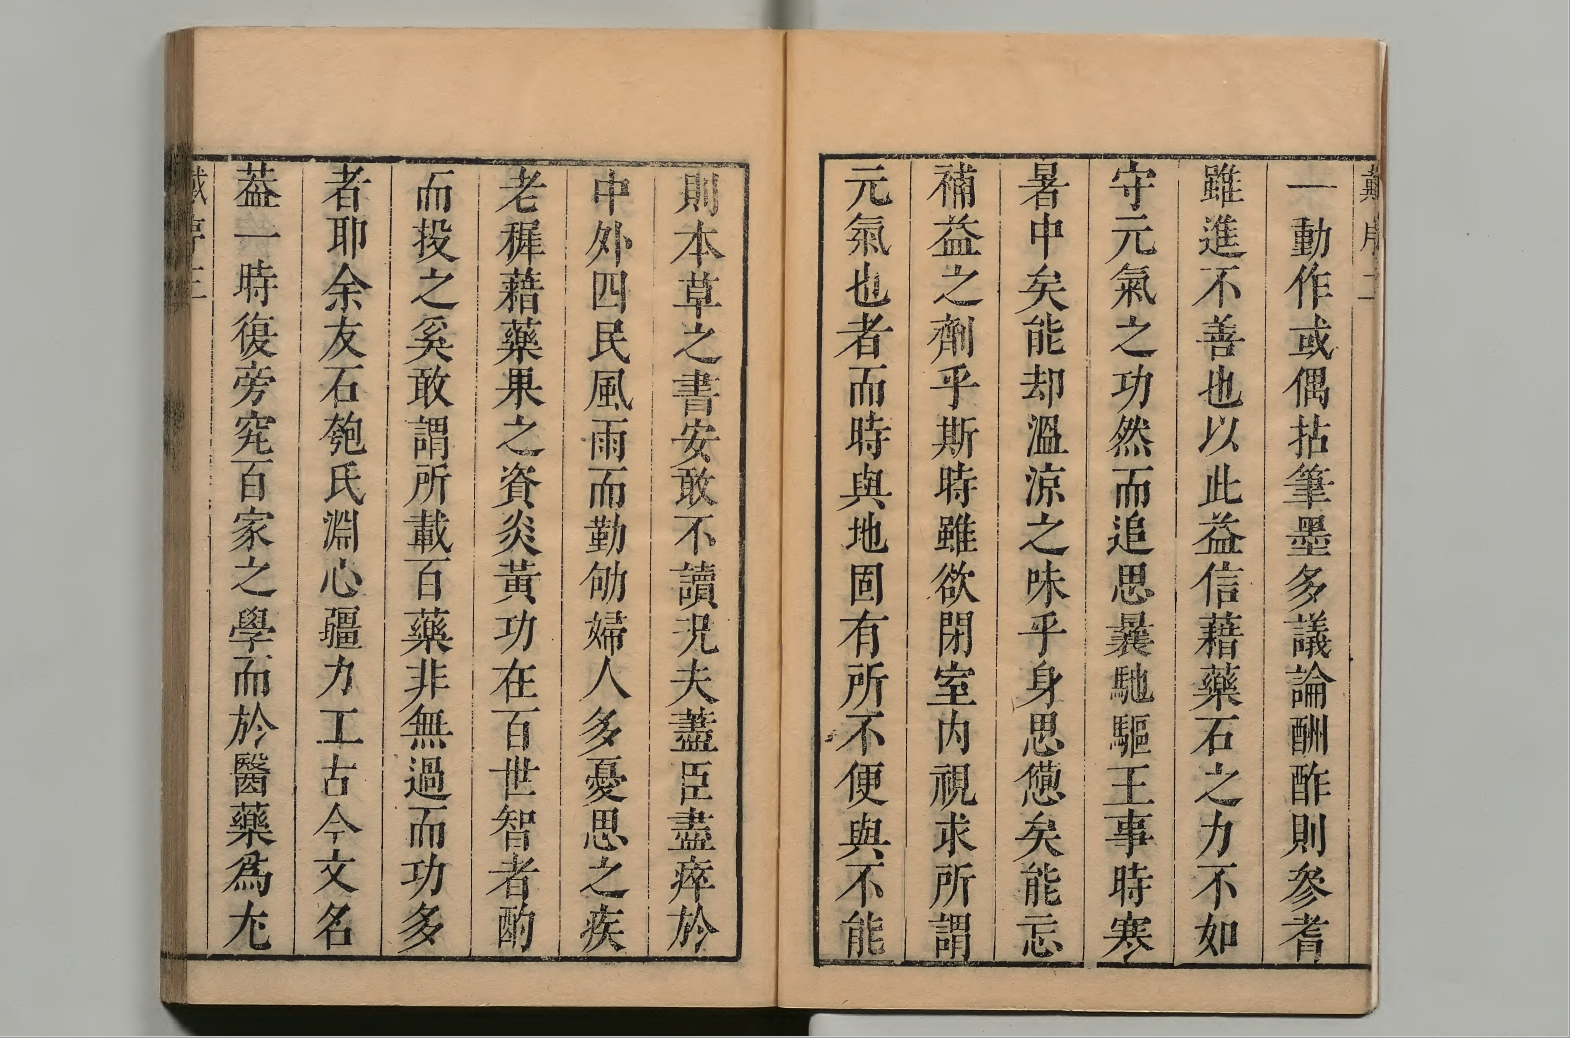 一動作或偶拈筆墨多議論酬酢則參耆
雖進不善也以此益信藉藥石之力不如
守元氣之功然而追思曩馳驅王事時寒
暑中矣能却溫涼之味乎身思憊矣能忘
補益之劑乎斯時雖欲閉室内視求所謂
元氣也者而時與地固有所不便與不能
則本草之書安敢不讀況夫藎臣盡瘁於
中外四民風雨而勤劬婦人多憂思之疾
老稺藉藥果之資炎黃功在百世智者酌
而投之奚敢謂所載百藥非無過而功多
者耶余友石匏氏淵心疆力工古今文名
葢一時復旁究百家之學而於醫藥為尢